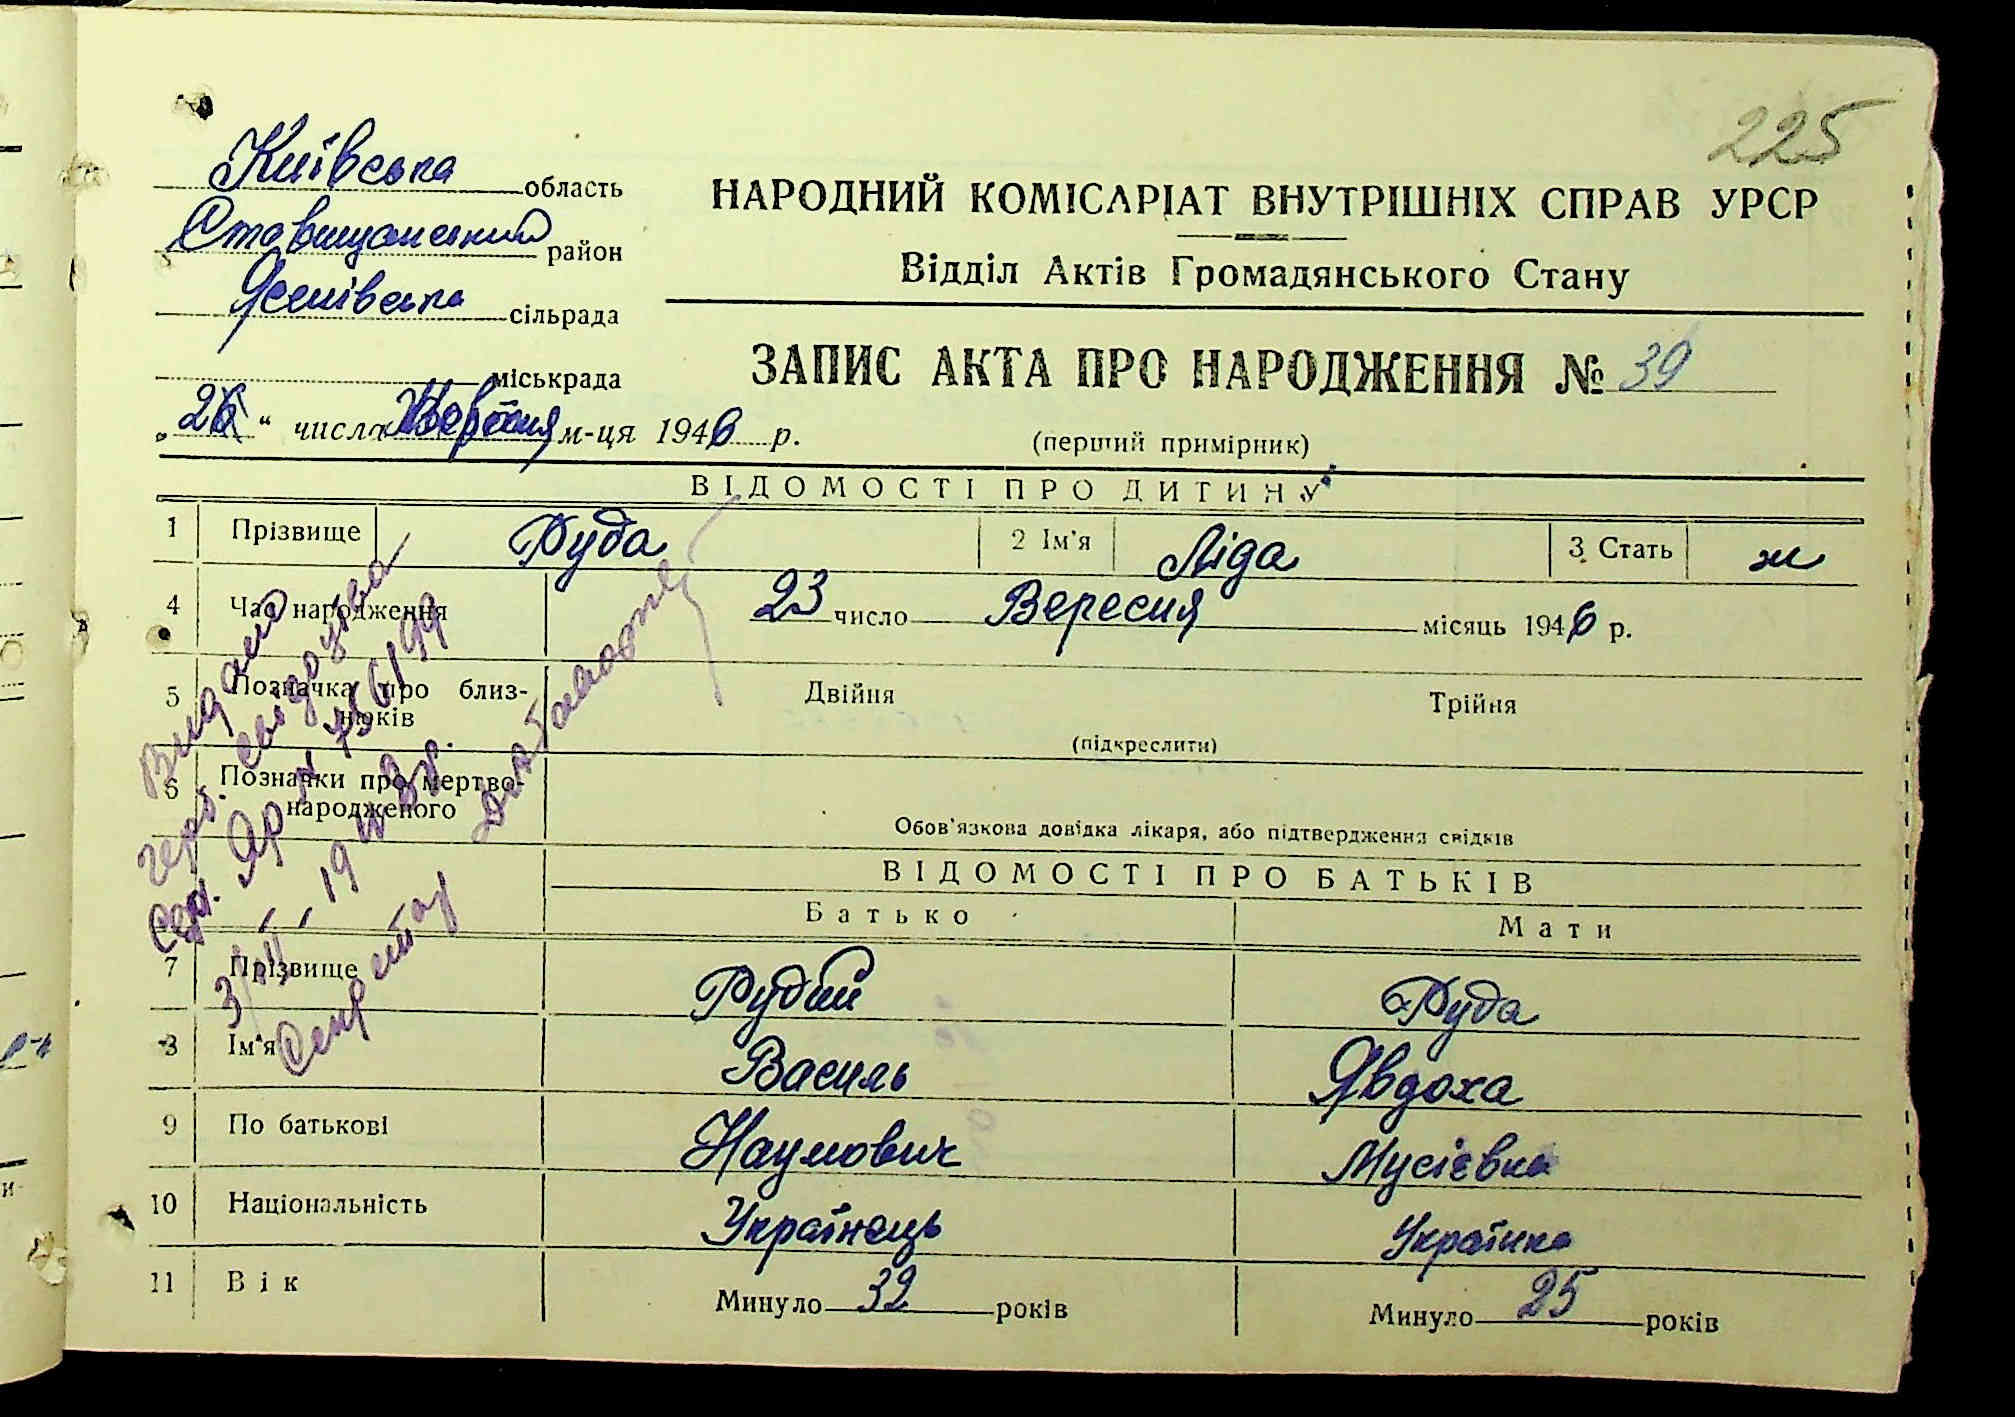 225
Київська область
Ставищанський район
Ясенівська сільрада
міськрада
„26“ числа Вересня м-ця 1946 р.
НАРОДНИЙ КОМІСАРІАТ ВНУТРІШНІХ СПРАВ УРСР
Відділ Актів Громадянського Стану
ЗАПИС АКТА ПРО НАРОДЖЕННЯ № 39
(перший примірник)
ВІДОМОСТІ ПРО ДИТИНУ
1 Прізвище Руда 2 Ім'я Ліда 3 Стать ж
4 Час народження 23 число Вересня місяць 1946 р.
5 Позначка про близ-
нюків Двійня Трійня
(підкреслити)
6 Позначки про мертво-
народженого
Обов'язкова довідка лікаря, або підтвердження свідків
ВІДОМОСТІ ПРО БАТЬКІВ
Батько Мати
7 Прізвище Рудий Руда
8 Ім'я Василь Явдоха
9 По батькові Наумович Мусієвна
10 Національність Українець Українка
11 Вік Минуло 32 років Минуло 25 років
Видано
свідоцтва
Секретар